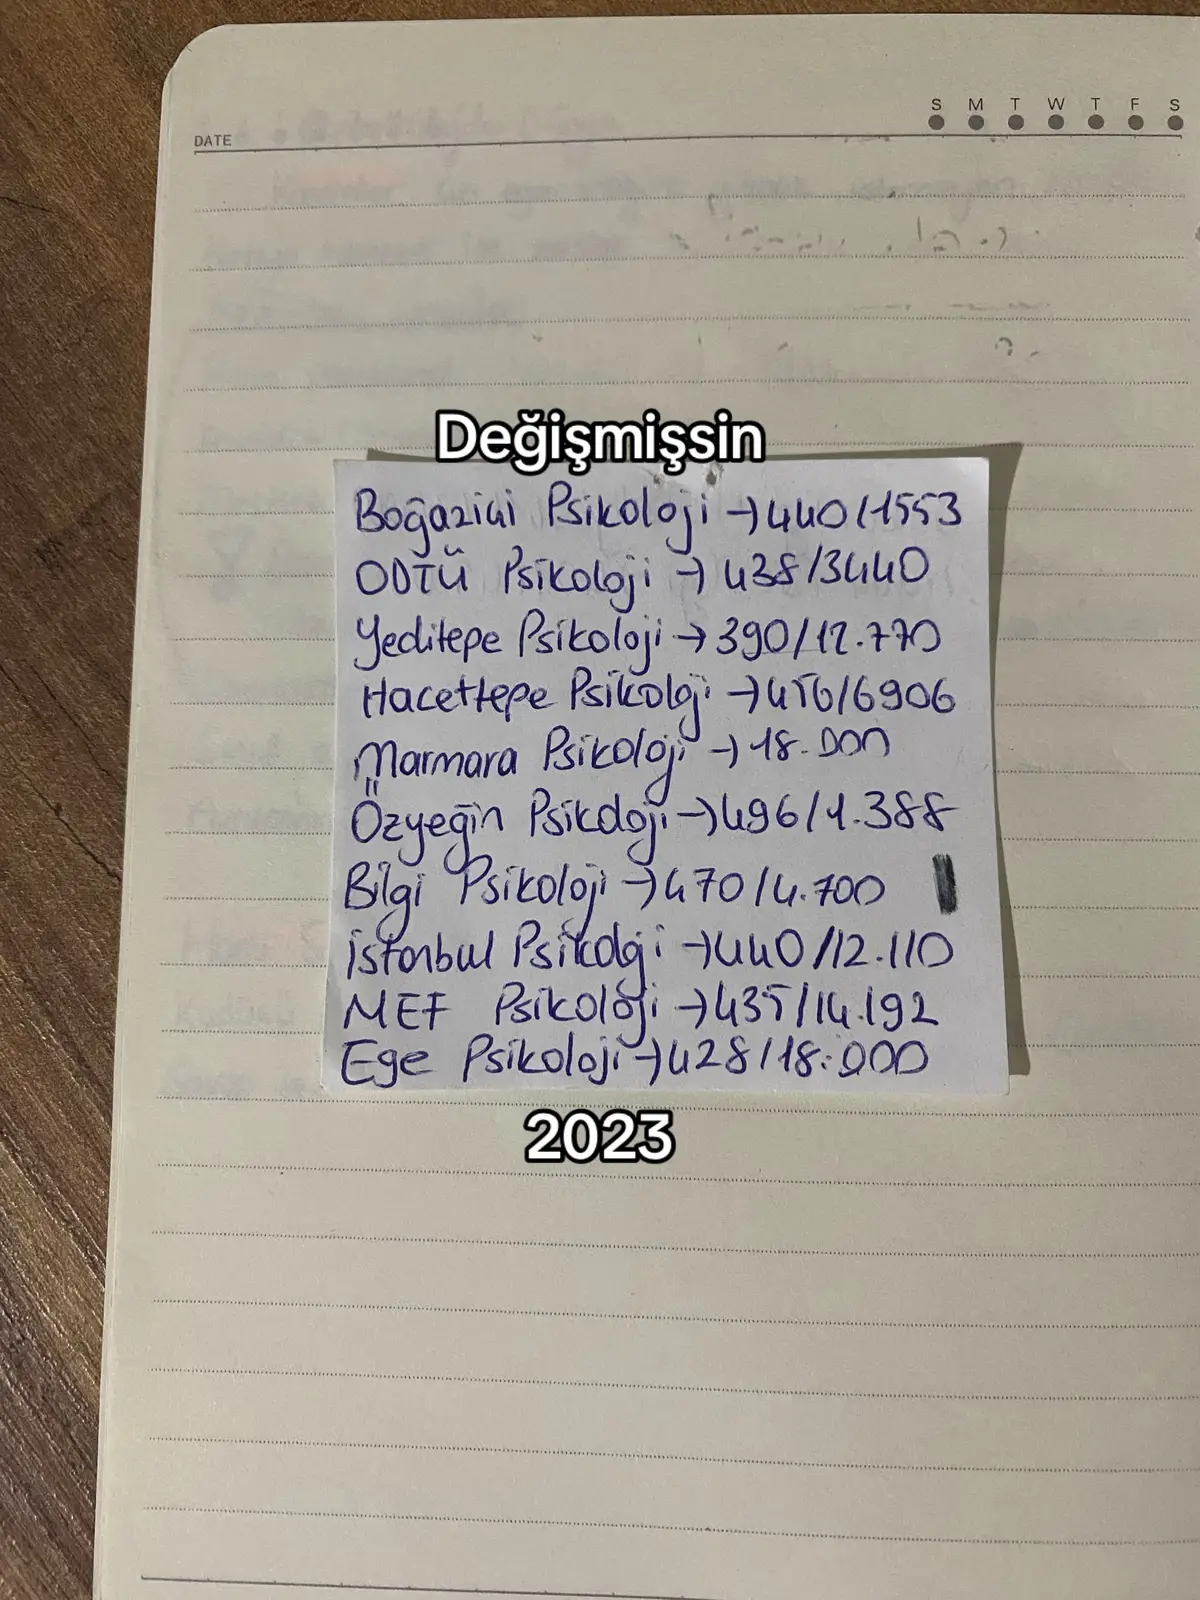 S M T W T F S
DATE
Değişmişsin
Boğaziçi Psikoloji → 440/1553
ODTÜ Psikoloji → 438/3440
Yeditepe Psikoloji → 390/12.770
Hacettepe Psikoloji → 456/6906
Marmara Psikoloji → 18.000
Özyeğin Psikoloji → 496/1.388
Bilgi Psikoloji → 470/4.700
İstanbul Psikoloji → 440/12.110
MEF Psikoloji → 435/14.192
Ege Psikoloji → 428/18.000
2023